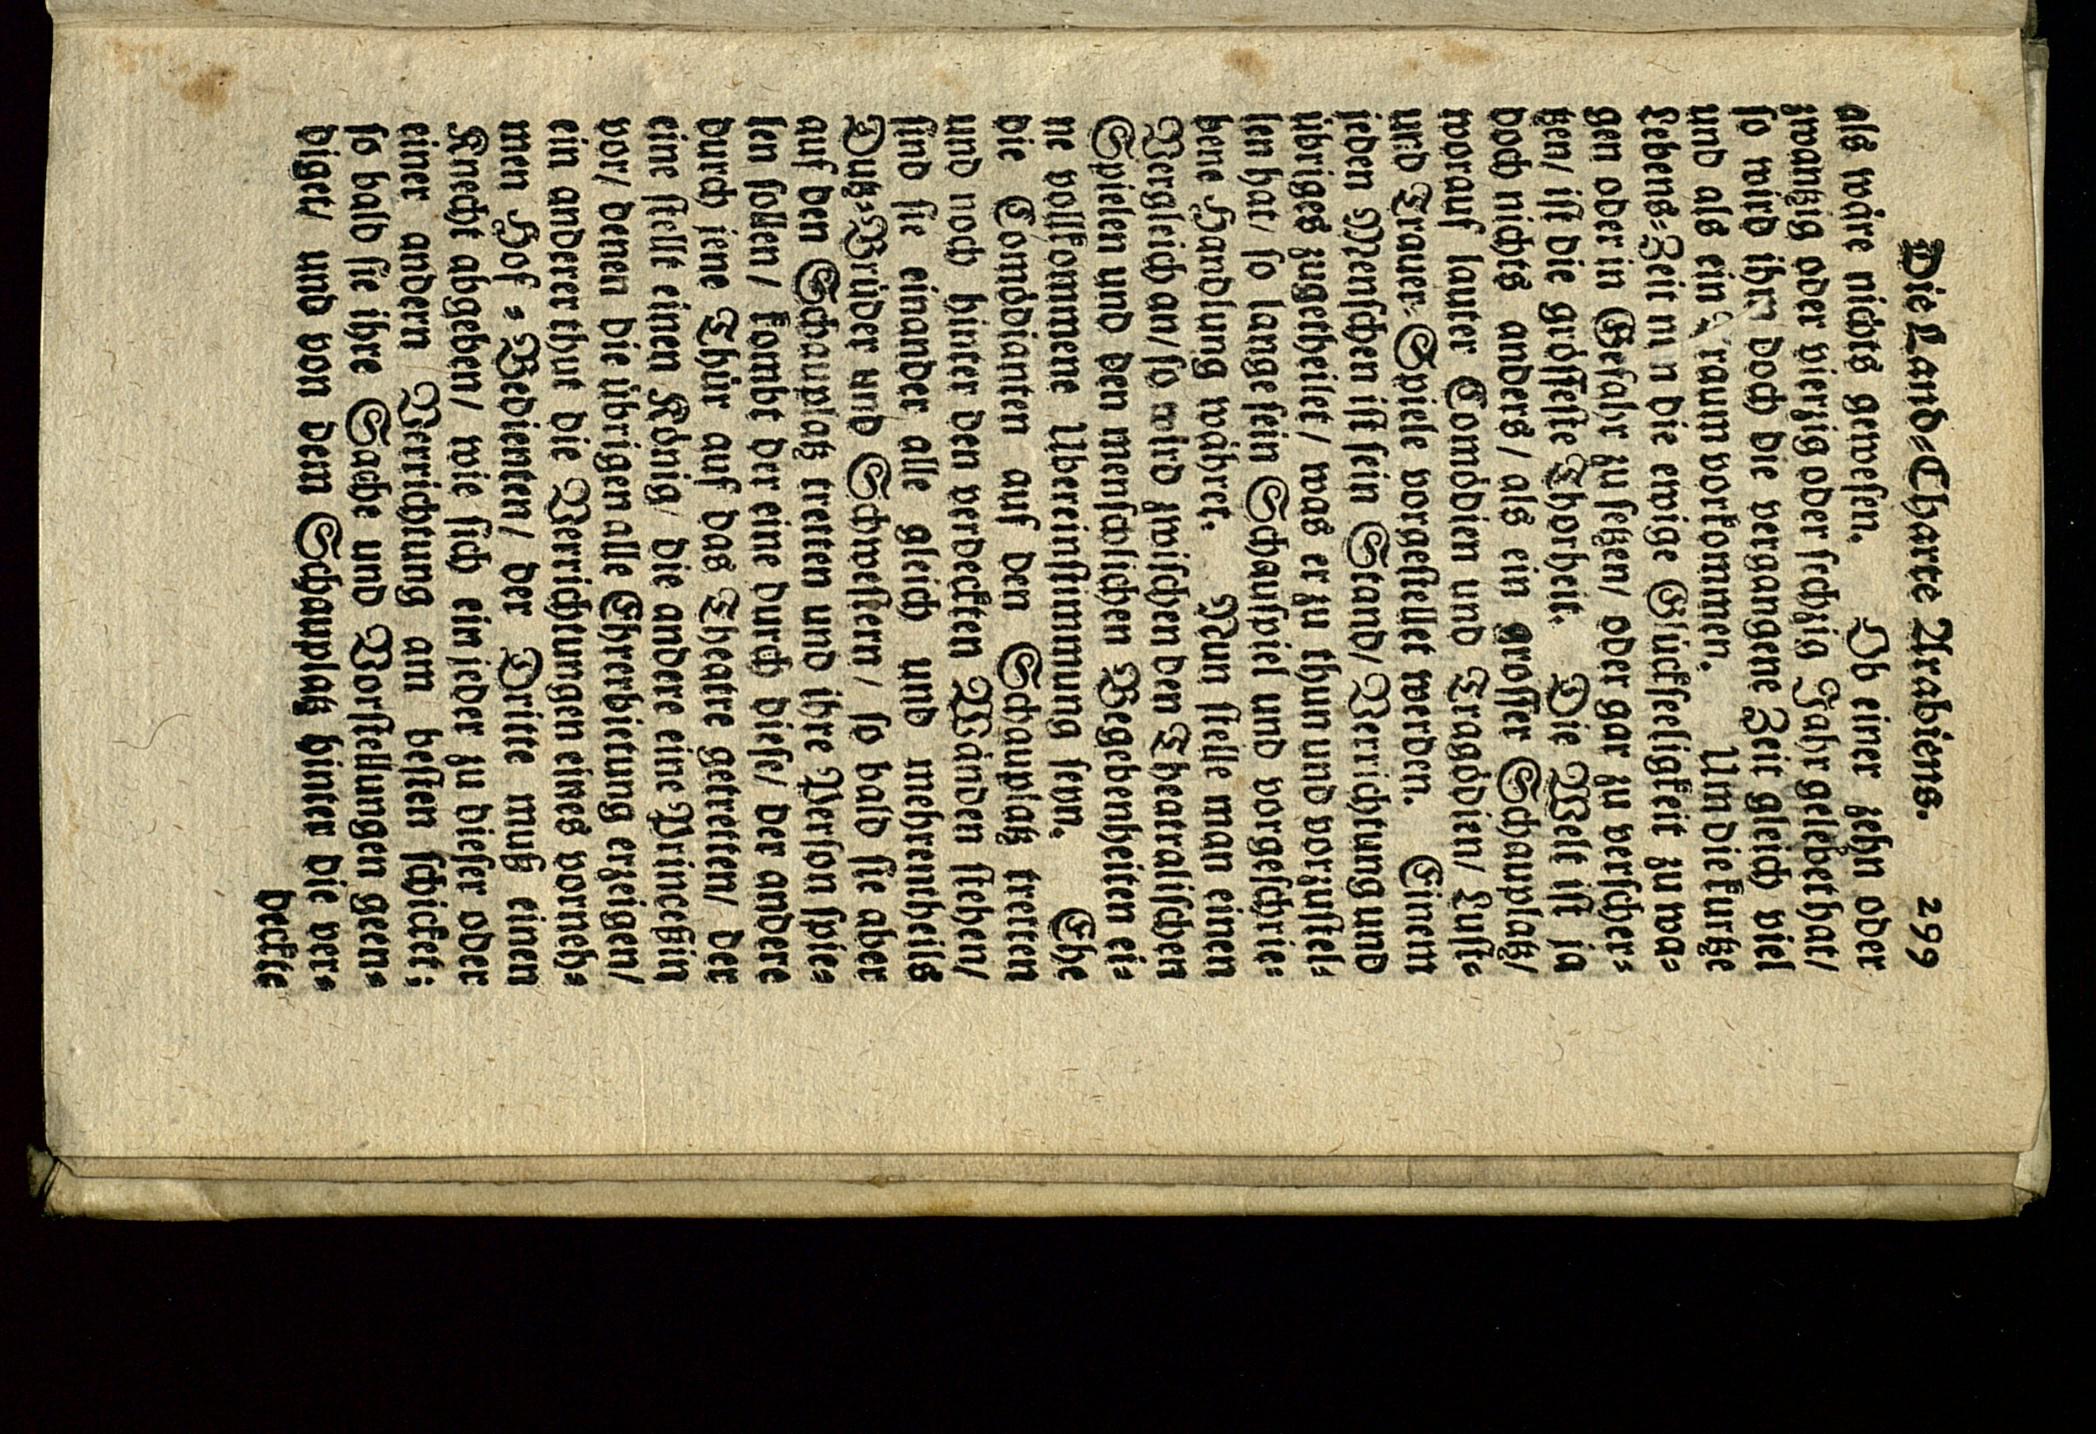 Die Land-Charte Arabiens. 299
als wäre nichts gewesen. Ob einer zehn oder
zwantzig oder vierzig oder sechzig Jahr gelebet hat/
so wird ihm doch die vergangene Zeit gleich viel
und als ein Traum vorkommen. Um die kurtze
Lebens-Zeit nun in die ewige Glückseeligkeit zu wa-
gen oder in Gefahr zu setzen/ oder gar zu verscher-
tzen/ ist die grösseste Thorheit. Die Welt ist ja
doch nichts anders/ als ein grosser Schauplatz/
worauf lauter Comödien und Tragödien/ Lust-
und Trauer-Spiele vorgestellet werden. Einem
jeden Menschen ist sein Stand/ Verrichtung und
übriges zugetheilet/ was er zu thun und vorzustel-
len hat/ so lange sein Schauspiel und vorgeschrie-
bene Handlung währet. Nun stelle man einen
Vergleich an/ so wird zwischen den Theatralischen
Spielen und den menschlichen Begebenheiten ei-
ne vollkommene Ubereinstimmung seyn. Ehe
die Comödianten auf den Schauplatz tretten
und noch hinter den verdeckten Wänden stehen/
sind sie einander alle gleich und mehrentheils
Dutz-Brüder und Schwestern/ so bald sie aber
auf den Schauplatz tretten und ihre Person spie-
len sollen/ kombt der eine durch diese/ der andere
durch jene Thür auf das Theatre getretten/ der
eine stellt einen König/ die andere eine Princeßin
vor/ denen die übrigen alle Ehrerbietung erzeigen/
ein anderer thut die Verrichtungen eines vorneh-
men Hof-Bedienten/ der Dritte muß einen
Knecht abgeben/ wie sich ein jeder zu dieser oder
einer andern Verrichtung am besten schicket;
so bald sie ihre Sache und Vorstellungen geen-
diget/ und von dem Schauplatz hinter die ver-
deckte